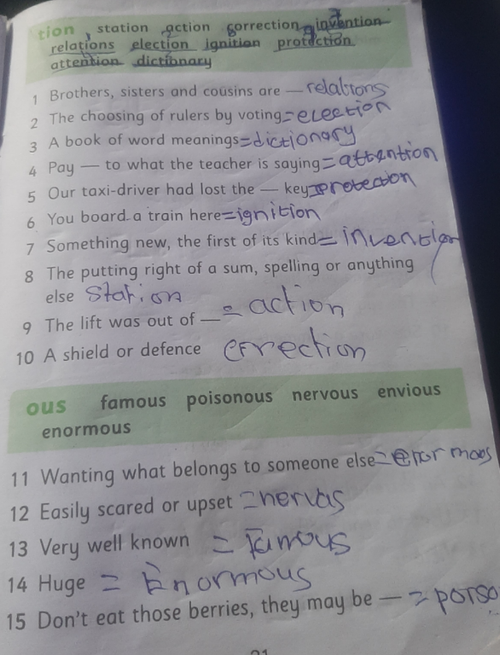 tion , station action correction invention
relations election ignition protection
attention dictionary
1 Brothers, sisters and cousins are — relations
2 The choosing of rulers by voting =election
3 A book of word meanings =dictionary
4 Pay — to what the teacher is saying =attention
5 Our taxi-driver had lost the — key =protection
6 You board a train here =ignition
7 Something new, the first of its kind = invention
8 The putting right of a sum, spelling or anything
else station
9 The lift was out of — = action
10 A shield or defence crrection
ous famous poisonous nervous envious
enormous
11 Wanting what belongs to someone else =enormous
12 Easily scared or upset =nervas
13 Very well known = Famous
14 Huge = Enormous
15 Don't eat those berries, they may be — = poiso